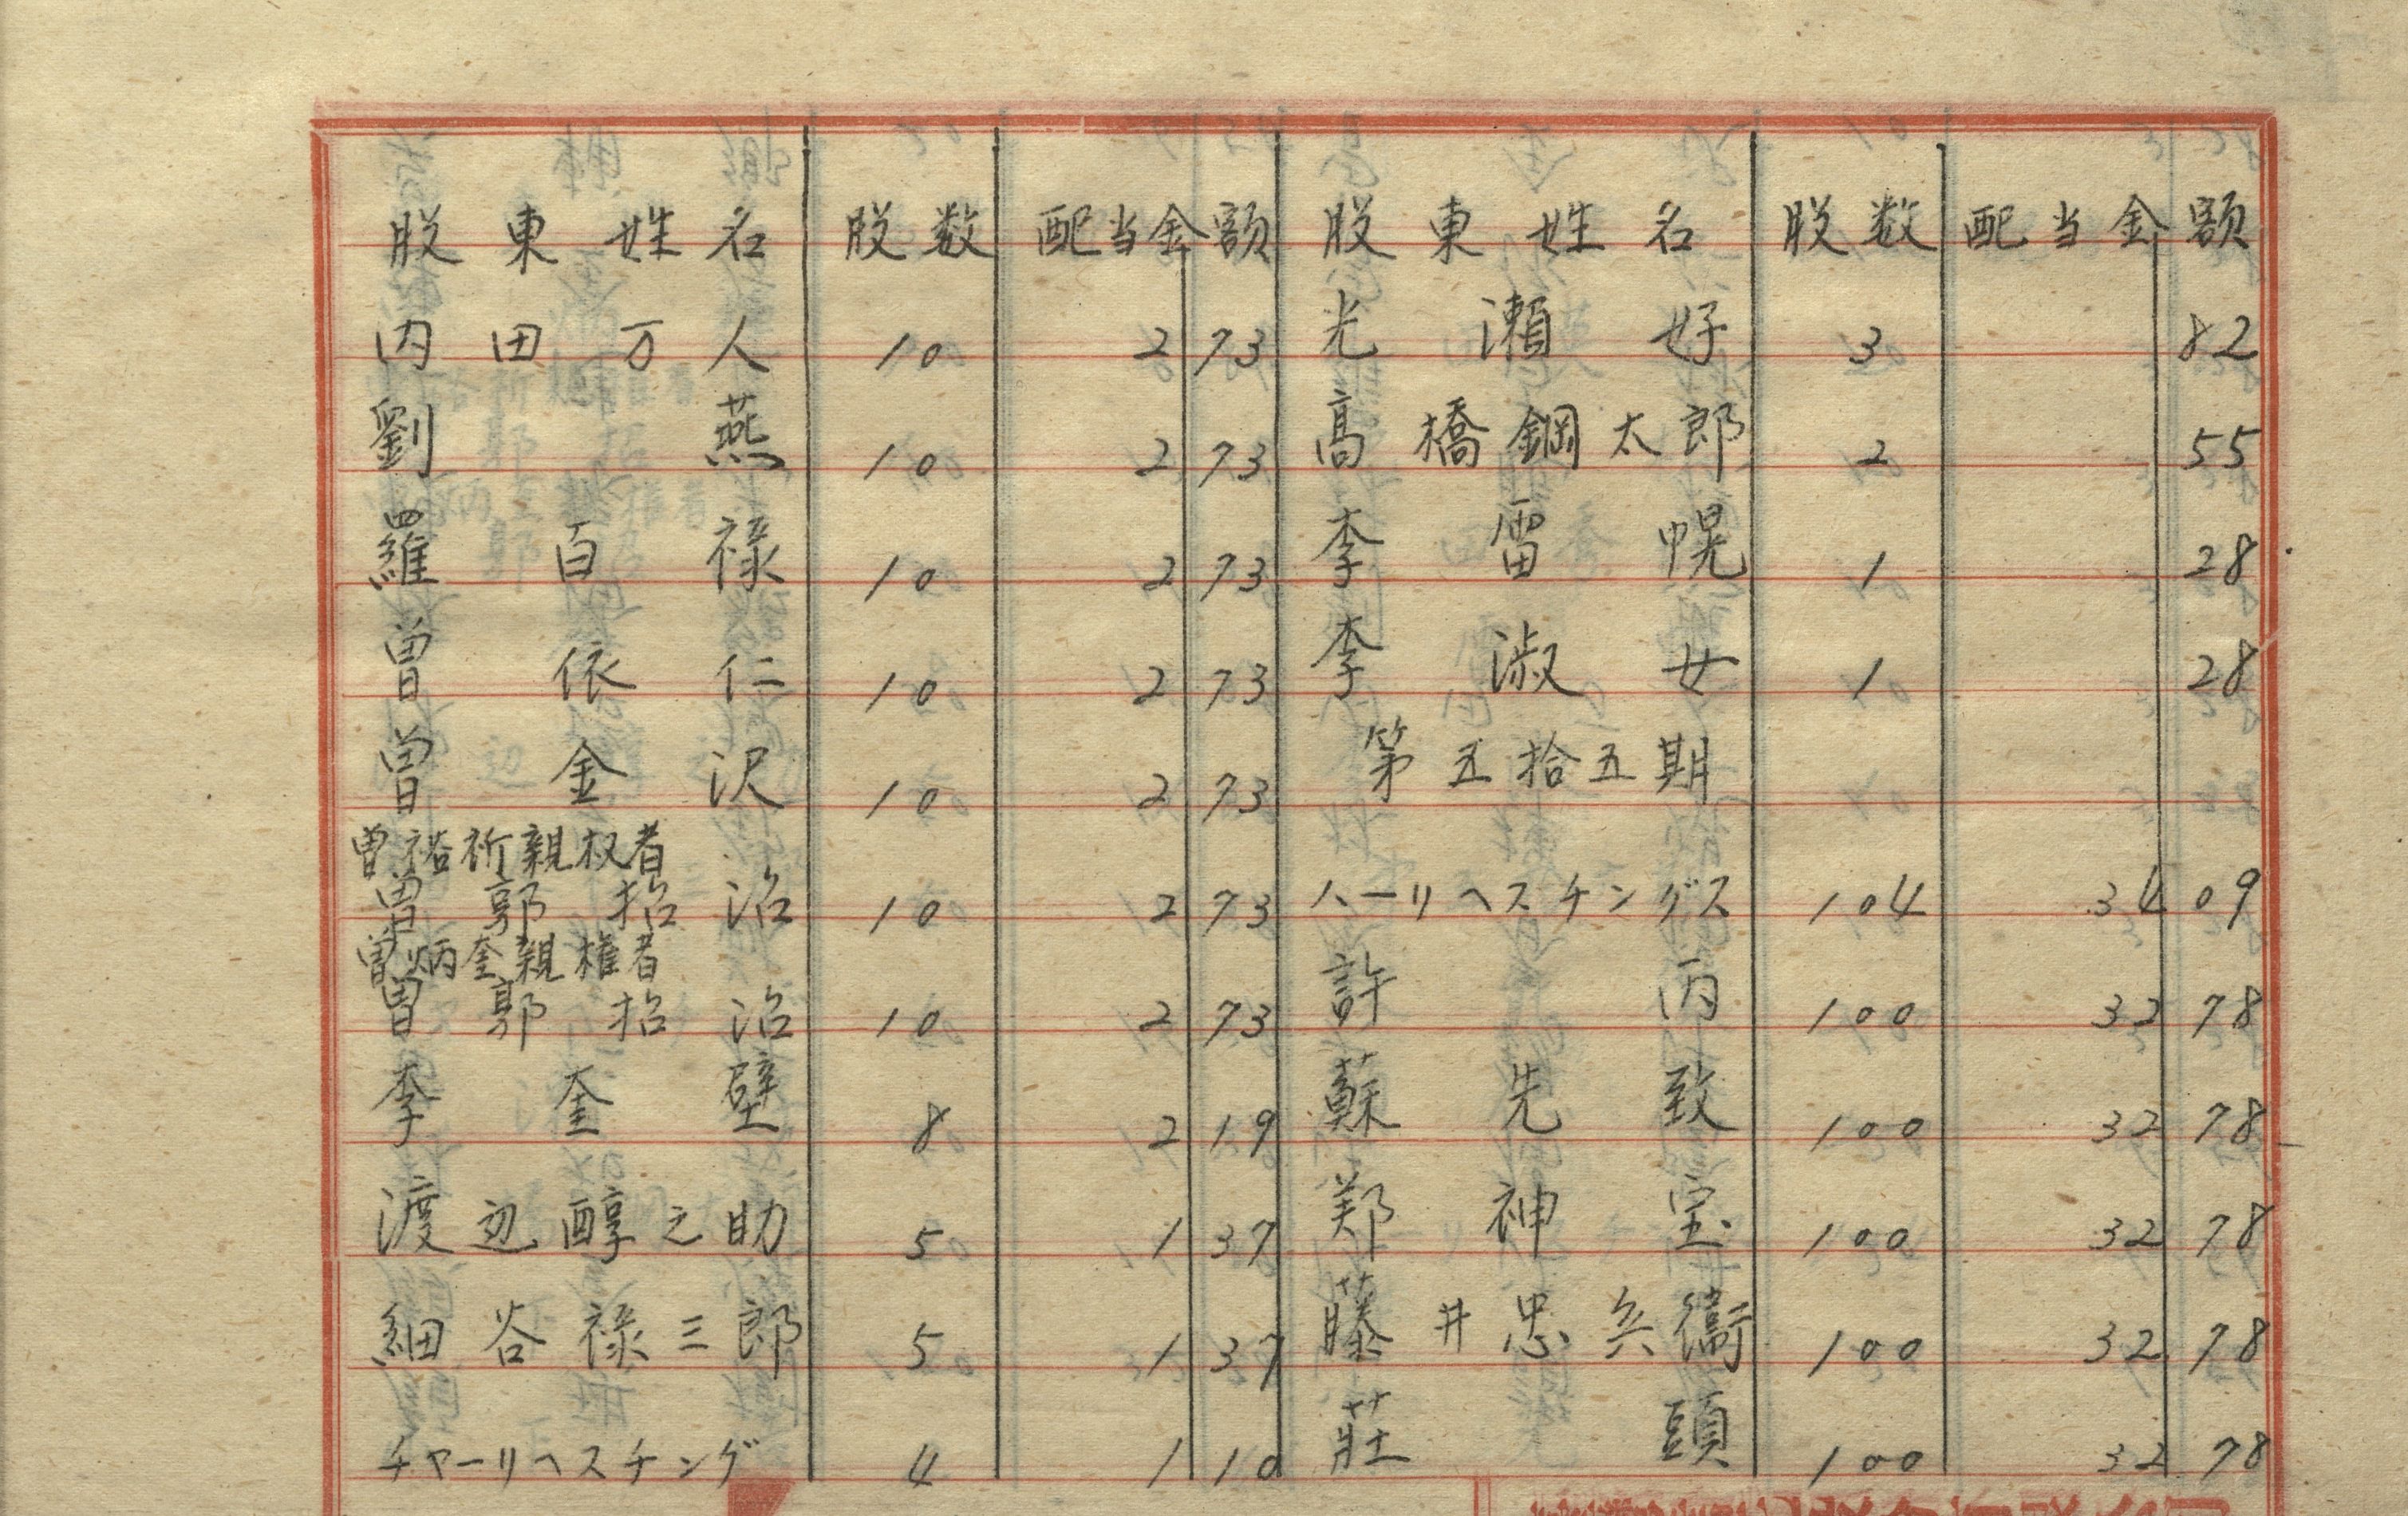 股東姓名 股数 配当金額
内田万人 10 2 73
劉燕 10 2 73
羅百禄 10 2 73
曽依仁 10 2 73
曽金沢 10 2 73
曽裕祈親权者
曽郭招治 10 2 73
曽炳奎親権者
曽郭招治 10 2 73
李奎壁 8 2 19
渡辺醇之助 5 1 37
細谷禄三郎 5 1 37
チャーリヘスチング 4 1 10
股東姓名 股数 配当金額
光瀬好 3 82
高橋鋼太郎 2 55
李雷幌 1 28
李淑女 1 28
第五拾五期
ハーリヘスチングス 104 34 09
許丙 100 32 78
蘇先致 100 32 78
郑神宝 100 32 78
藤井忠兵衞 100 32 78
莊頭 100 32 78